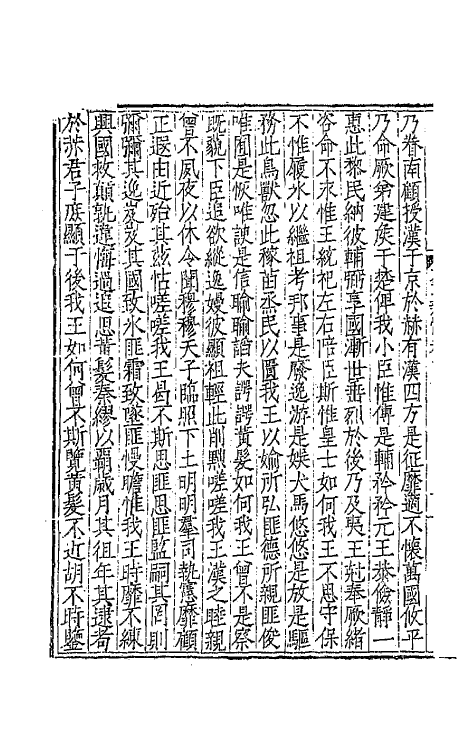 乃眷南顧授漢于京於赫有漢四方是征靡適不懷萬國攸平
乃命厥弟建侯于楚俾我小臣惟傅是輔矜矜元王恭儉靜一
惠此黎民納彼輔弼享國漸世垂烈於後乃及夷王尅奉厥緒
咨命不永惟王統祀左右陪臣斯惟皇士如何我王不思守保
不惟履冰以繼祖考邦事是廢逸游是娱犬馬悠悠是放是驅
務此鳥獸忽此稼苗烝民以匱我王以媮所弘匪德所親匪俊
唯囿是恢唯諛是信睮睮謟夫諤諤黃髮如何我王曾不是察
既藐下臣追欲縱逸嫚彼顯祖輕此削黜嗟嗟我王漢之睦親
曾不夙夜以休令聞穆穆天子臨照下土明明羣司執憲靡顧
正遐由近殆其玆怙嗟嗟我王曷不斯思匪思匪監嗣其罔則
彌彌其逸岌岌其國致冰匪霜致墜匪嫚瞻惟我王時靡不練
興國救顛孰違悔過追思黃髮秦繆以霸歲月其徂年其逮耇
於赫君子庶顯于後我王如何曾不斯覽黃髮不近胡不時鑒